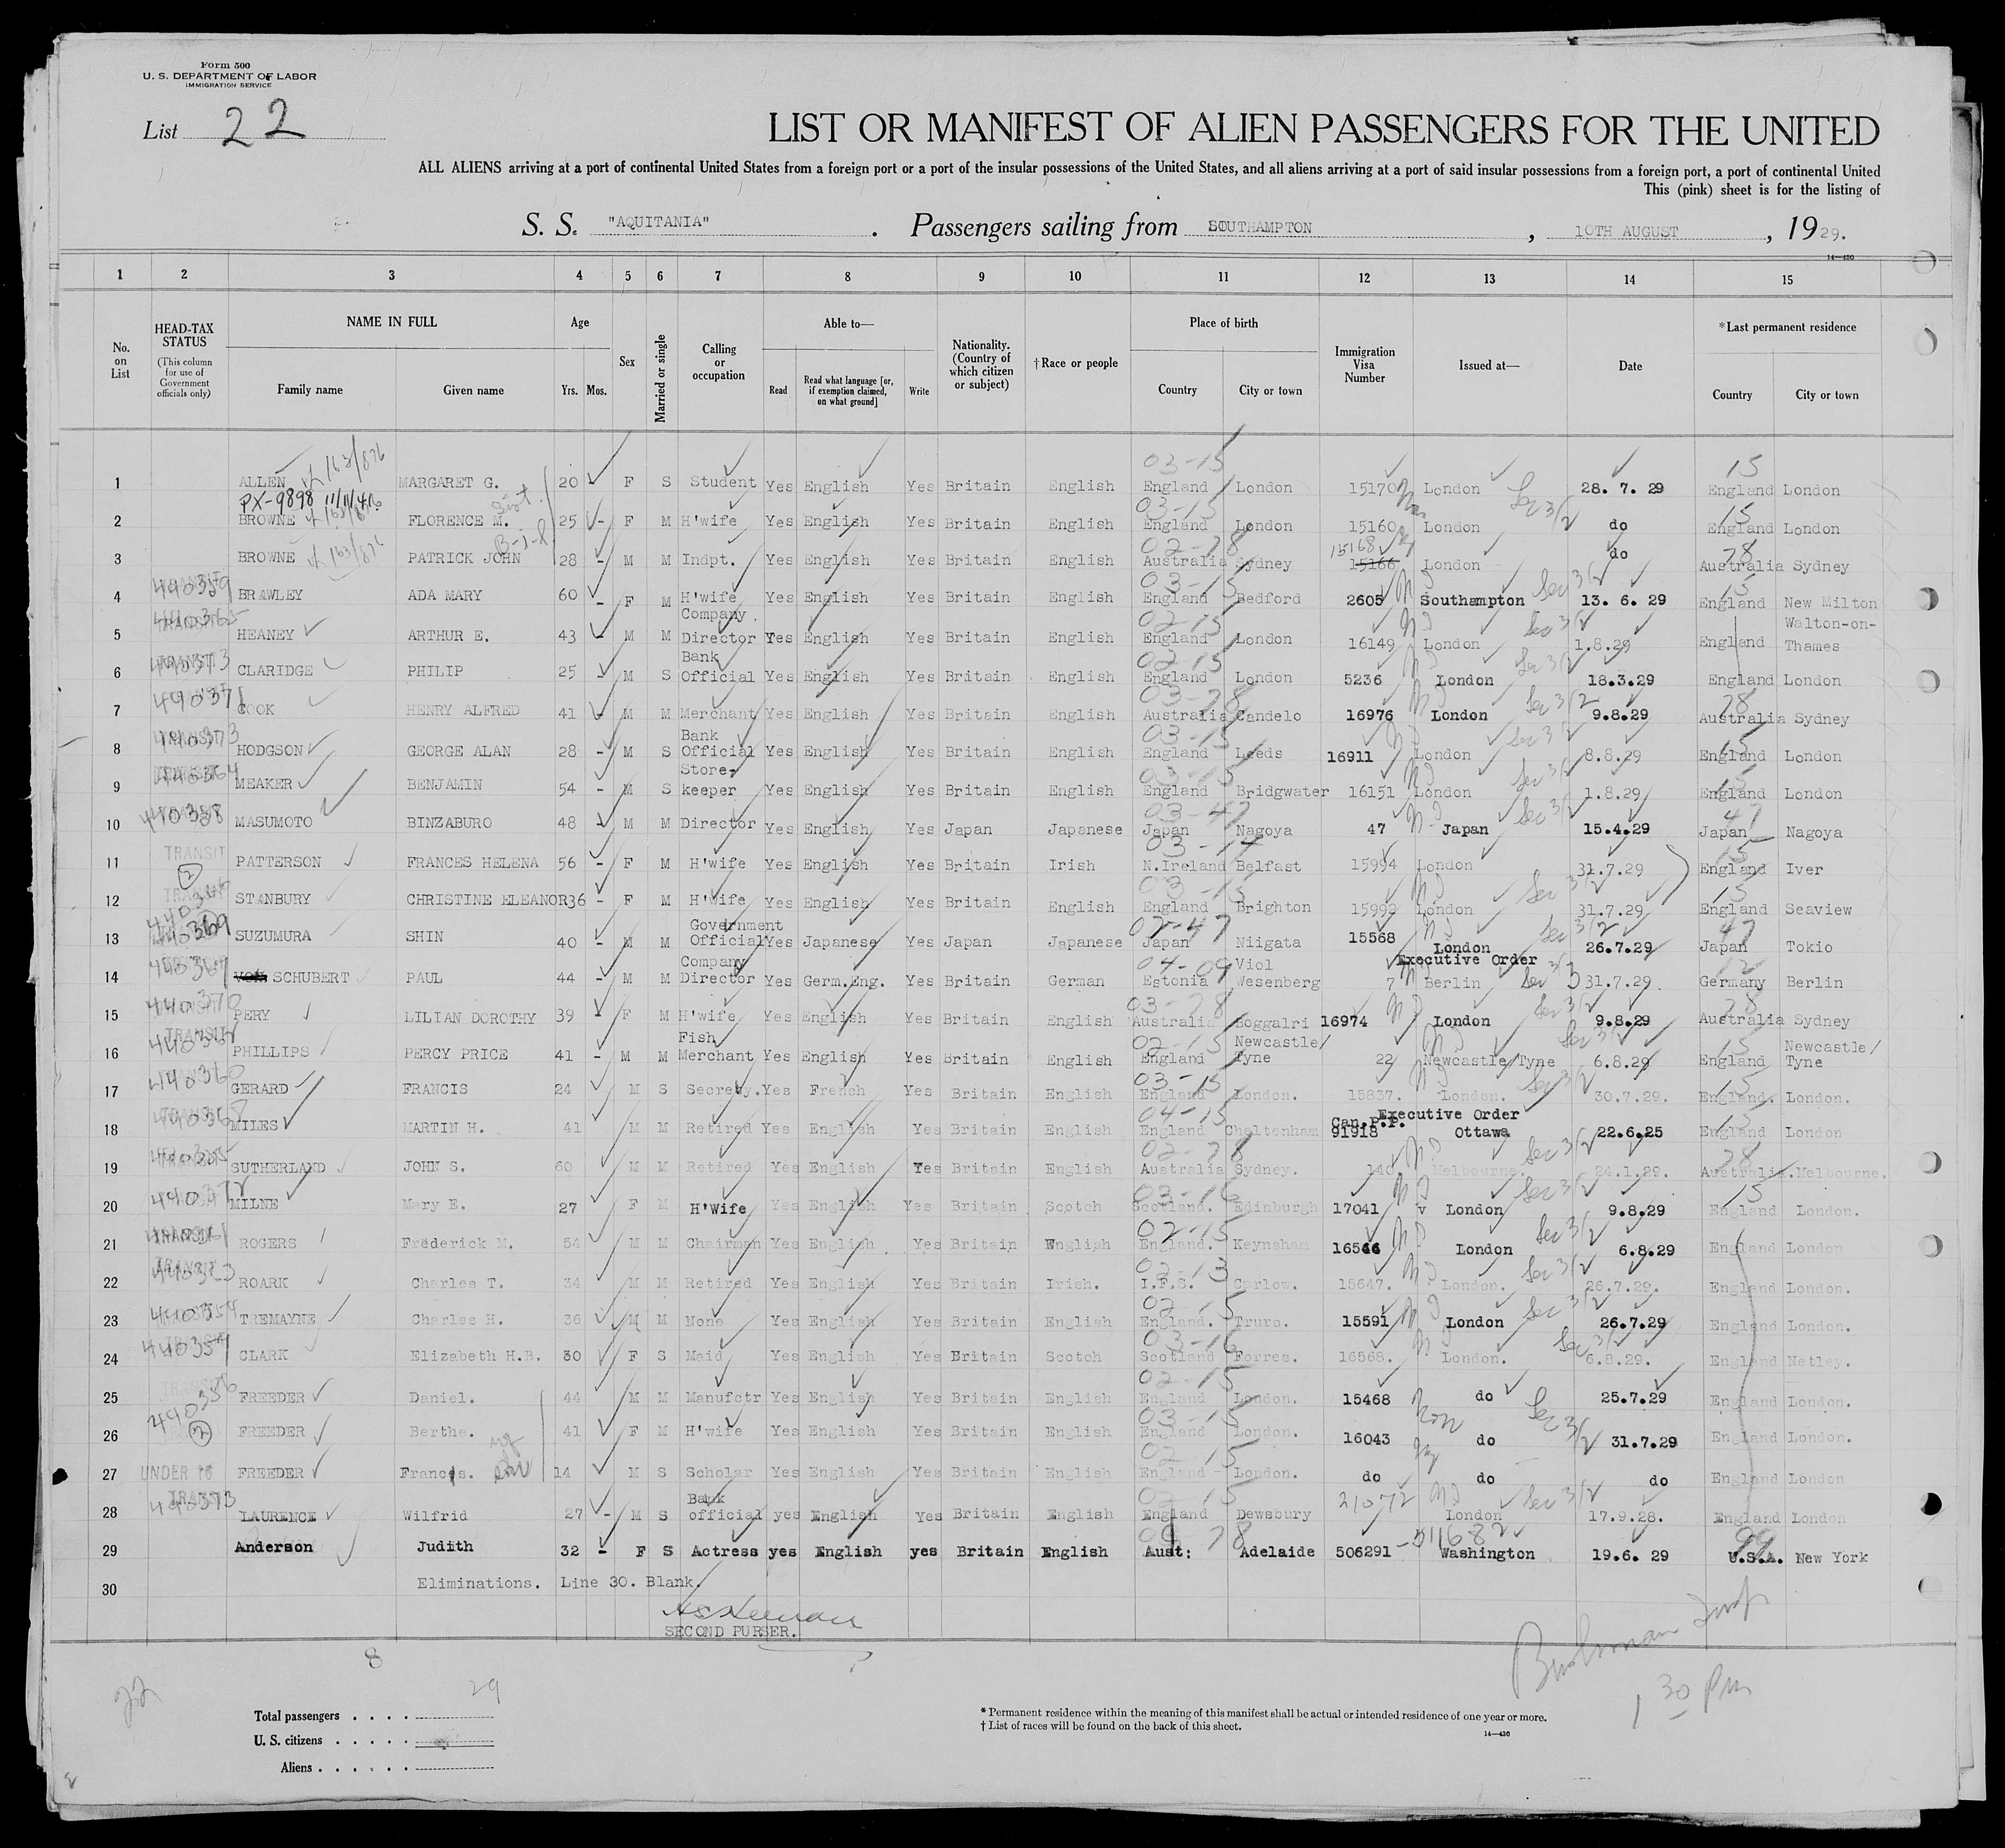 Form 500
U. S. DEPARTMENT OF LABOR
IMMIGRATION SERVICE
List 22
LIST OR MANIFEST OF ALIEN PASSENGERS FOR THE UNITED
ALL ALIENS arriving at a port of continental United States from a foreign port or a port of the insular possessions of the United States, and all aliens arriving at a port of said insular possessions from a foreign port, a port of continental United
This (pink) sheet is for the listing of
S. S. "AQUITANIA" . Passengers sailing from SOUTHAMPTON , 10TH AUGUST , 1929.
14—430
1 2 3 4 5 6 7 8 9 10 11 12 13 14 15
No. on List
HEAD-TAX STATUS (This column for use of Government officials only)
NAME IN FULL Family name Given name
Age Yrs. Mos.
Sex
Married or single
Calling or occupation
Able to— Read Read what language [or, if exemption claimed, on what ground] Write
Nationality. (Country of which citizen or subject)
†Race or people
Place of birth Country City or town
Immigration Visa Number
Issued at—
Date
*Last permanent residence Country City or town
1 ALLEN MARGARET G. 20 F S Student Yes English Yes Britain English England London 15170 London 28. 7. 29 England London
PX-9898 11/11/40
2 BROWNE FLORENCE M. 25 - F M H'wife Yes English Yes Britain English England London 15160 London do England London
3 BROWNE PATRICK JOHN 28 - M M Indpt. Yes English Yes Britain English Australia Sydney 15168 15166 London do Australia Sydney
4 BRAWLEY ADA MARY 60 - F M H'wife Yes English Yes Britain English England Bedford 2605 Southampton 13. 6. 29 England New Milton
5 HEANEY ARTHUR E. 43 - M M Company Director Yes English Yes Britain English England London 16149 London 1.8.29 England Walton-on-Thames
6 CLARIDGE PHILIP 25 - M S Bank Official Yes English Yes Britain English England London 5236 London 18.3.29 England London
7 COOK HENRY ALFRED 41 - M M Merchant Yes English Yes Britain English Australia Candelo 16976 London 9.8.29 Australia Sydney
8 HODGSON GEORGE ALAN 28 - M S Bank Official Yes English Yes Britain English England Leeds 16911 London 8.8.29 England London
9 MEAKER BENJAMIN 54 - M S Store-keeper Yes English Yes Britain English England Bridgwater 16151 London 1.8.29 England London
10 MASUMOTO BINZABURO 48 - M M Director Yes English Yes Japan Japanese Japan Nagoya 47 Japan 15.4.29 Japan Nagoya
11 TRANSIT PATTERSON FRANCES HELENA 56 - F M H'wife Yes English Yes Britain Irish N.Ireland Belfast 15994 London 31.7.29 England Iver
12 STANBURY CHRISTINE ELEANOR 36 - F M H'wife Yes English Yes Britain English England Brighton 15992 London 31.7.29 England Seaview
13 SUZUMURA SHIN 40 - M M Government Official Yes Japanese Yes Japan Japanese Japan Niigata 15568 London 26.7.29 Japan Tokio
14 SCHUBERT PAUL 44 - M M Company Director Yes Germ.Eng. Yes Britain German Estonia Viol Wesenberg 7 Executive Order Berlin 31.7.29. Germany Berlin
15 PERY LILIAN DOROTHY 39 - F M H'wife Yes English Yes Britain English Australia Boggalri 16974 London 9.8.29 Australia Sydney
16 PHILLIPS PERCY PRICE 41 - M M Fish Merchant Yes English Yes Britain English England Newcastle/Tyne 22 Newcastle/Tyne 6.8.29 England Newcastle/Tyne
17 GERARD FRANCIS 24 M S Secrety. Yes French Yes Britain English England London. 15837. London. 30.7.29. England. London.
18 MILES MARTIN H. 41 M M Retired Yes English Yes Britain English England Cheltenham Can.P.P. 91918 Executive Order Ottawa 22.6.25 England London
19 SUTHERLAND JOHN S. 60 M M Retired Yes English Yes Britain English Australia Sydney. 140 Melbourne. 24.1.29. Australia. Melbourne.
20 MILNE Mary E. 27 F M H'Wife Yes English Yes Britain Scotch Scotland. Edinburgh 17041 London 9.8.29 England London.
21 ROGERS Frederick M. 54 M M Chairman Yes English Yes Britain English England. Keynsham 16566 London 6.8.29 England London
22 ROARK Charles T. 34 M M Retired Yes English Yes Britain Irish. I.F.S. Carlow. 15647. London. 26.7.29. England London.
23 TREMAYNE Charles H. 36 M M None Yes English Yes Britain English England. Truro. 15591 London 26.7.29 England London.
24 CLARK Elizabeth H.B. 30 F S Maid Yes English Yes Britain Scotch Scotland Forres. 16568. London. 6.8.29. England Netley.
25 FREEDER Daniel. 44 M M Manufctr Yes English Yes Britain English England London. 15468 do 25.7.29 England London.
26 FREEDER Berthe. 41 F M H'wife Yes English Yes Britain English England London. 16043 do 31.7.29 England London.
27 UNDER 16 FREEDER Francis. 14 M S Scholar Yes English Yes Britain English England London. do do do England London
28 LAURENCE Wilfrid 27 - M S Bank official yes English Yes Britain English England Dewsbury 21072 London 17.9.28. England London
29 Anderson Judith 32 - F S Actress yes English yes Britain English Aust: Adelaide 506291 - 511682 Washington 19.6. 29 U.S.A. New York
30 Eliminations. Line 30. Blank.
SECOND PURSER.
8
22
29
Total passengers
U. S. citizens
Aliens
* Permanent residence within the meaning of this manifest shall be actual or intended residence of one year or more.
† List of races will be found on the back of this sheet.
14—430
1 30 Pm